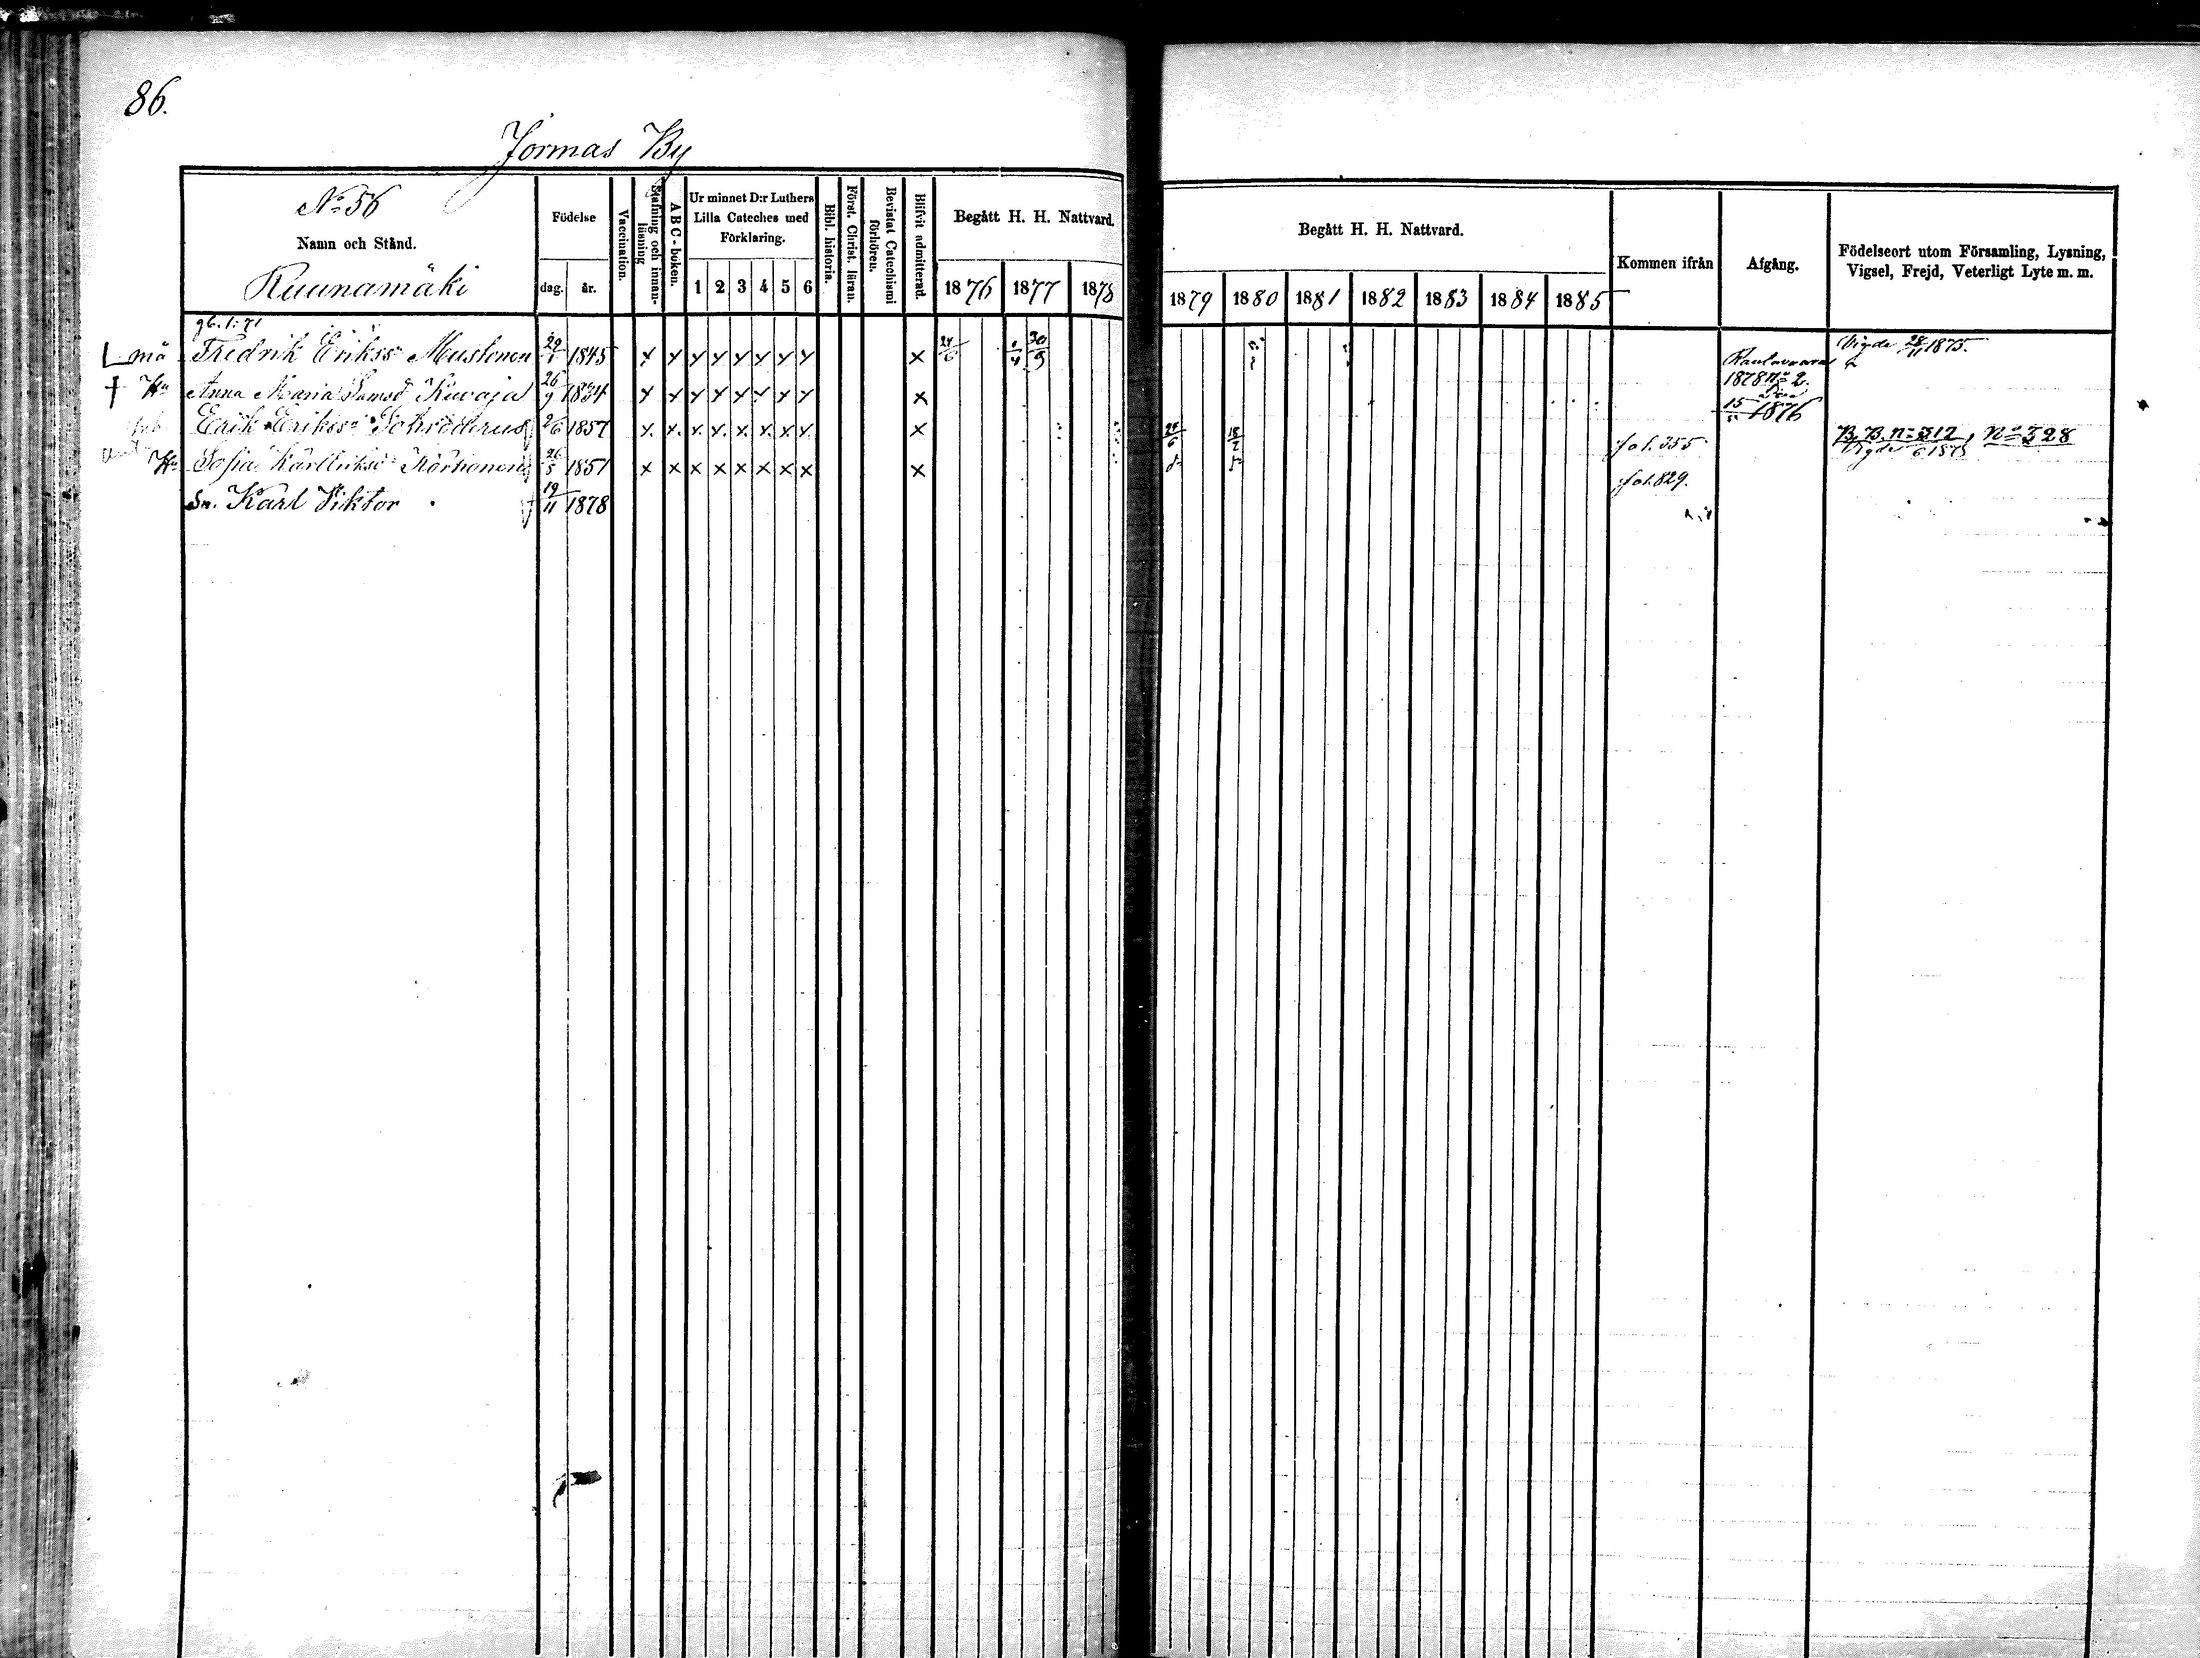 86.
Jormas By
No 56
Namn och Stånd.
Ruunamäki
Födelse
dag. år.
Vaccination.
Stafning och innan-läsning
A B C-boken.
Ur minnet D:r Luthers
Lilla Cateches med
Förklaring.
1 2 3 4 5 6
Bibl. historia.
Först. Christ. läran.
Bevistat Catechismi förhören.
Blifvit admitterad.
Begått H. H. Nattvard.
1876 1877 1878
Begått H. H. Nattvard.
1879 1880 1881 1882 1883 1884 1885
Kommen ifrån
Afgång.
Födelseort utom Församling, Lysning,
Vigsel, Frejd, Veterligt Lyte m. m.
gb. 1:71
må Fredrik Erikss Mustonen 29/1 1845 x x x x x x x x x 24/6 1/4 30/9 Vigde 28/11 1875.
1878 no 2.
Hu Anna Maria Samsd Kuvaja 26/9 1834 x x x x x x x x x 15 1876
Erik Erikss 26 1857 x x x x x x x x x 18/2 fol. 355 B. B. no 312, no 328
Vigde
Hu Sofia Karl Eriksd Korhonen 26/8 1851 x x x x x x x x x fol. 829.
Sn. Karl Viktor 19/11 1878